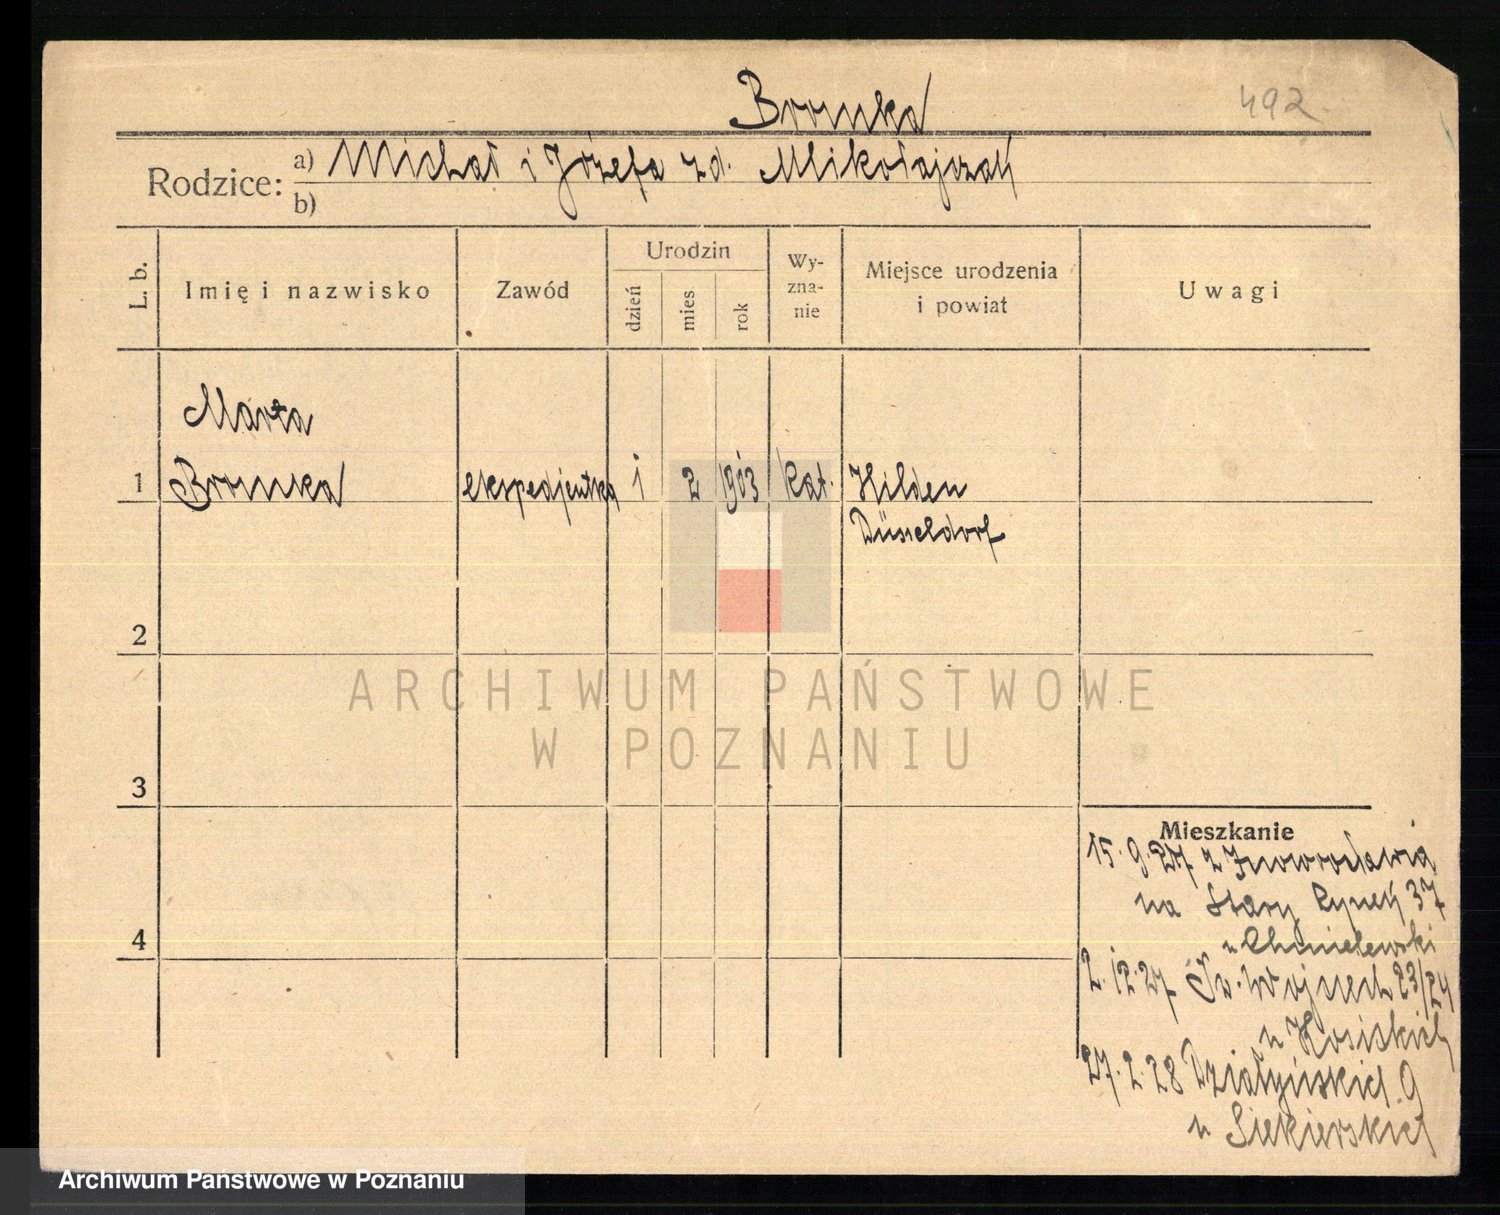 Bromka
492
Rodzice: a) Michał i Józefa zd. Mikołajczak
b)
L. b.
Imię i nazwisko
Zawód
Urodzin
dzień
mies
rok
Wy-
zna-
nie
Miejsce urodzenia
i powiat
Uwagi
Marta
1 Bromka ekspedjentka 1 2 1903 kat. Hilden
Düsseldorf
2
ARCHIWUM PAŃSTWOWE
W POZNANIU
3
Mieszkanie
15.9.27 z Inowrocławia
na Stary Rynek 37
u Chmielewski
4
2.12.27 Św. Wojciech 23/24
u
27.2.28 Działyńskich 9
u Siekierskich
Archiwum Państwowe w Poznaniu